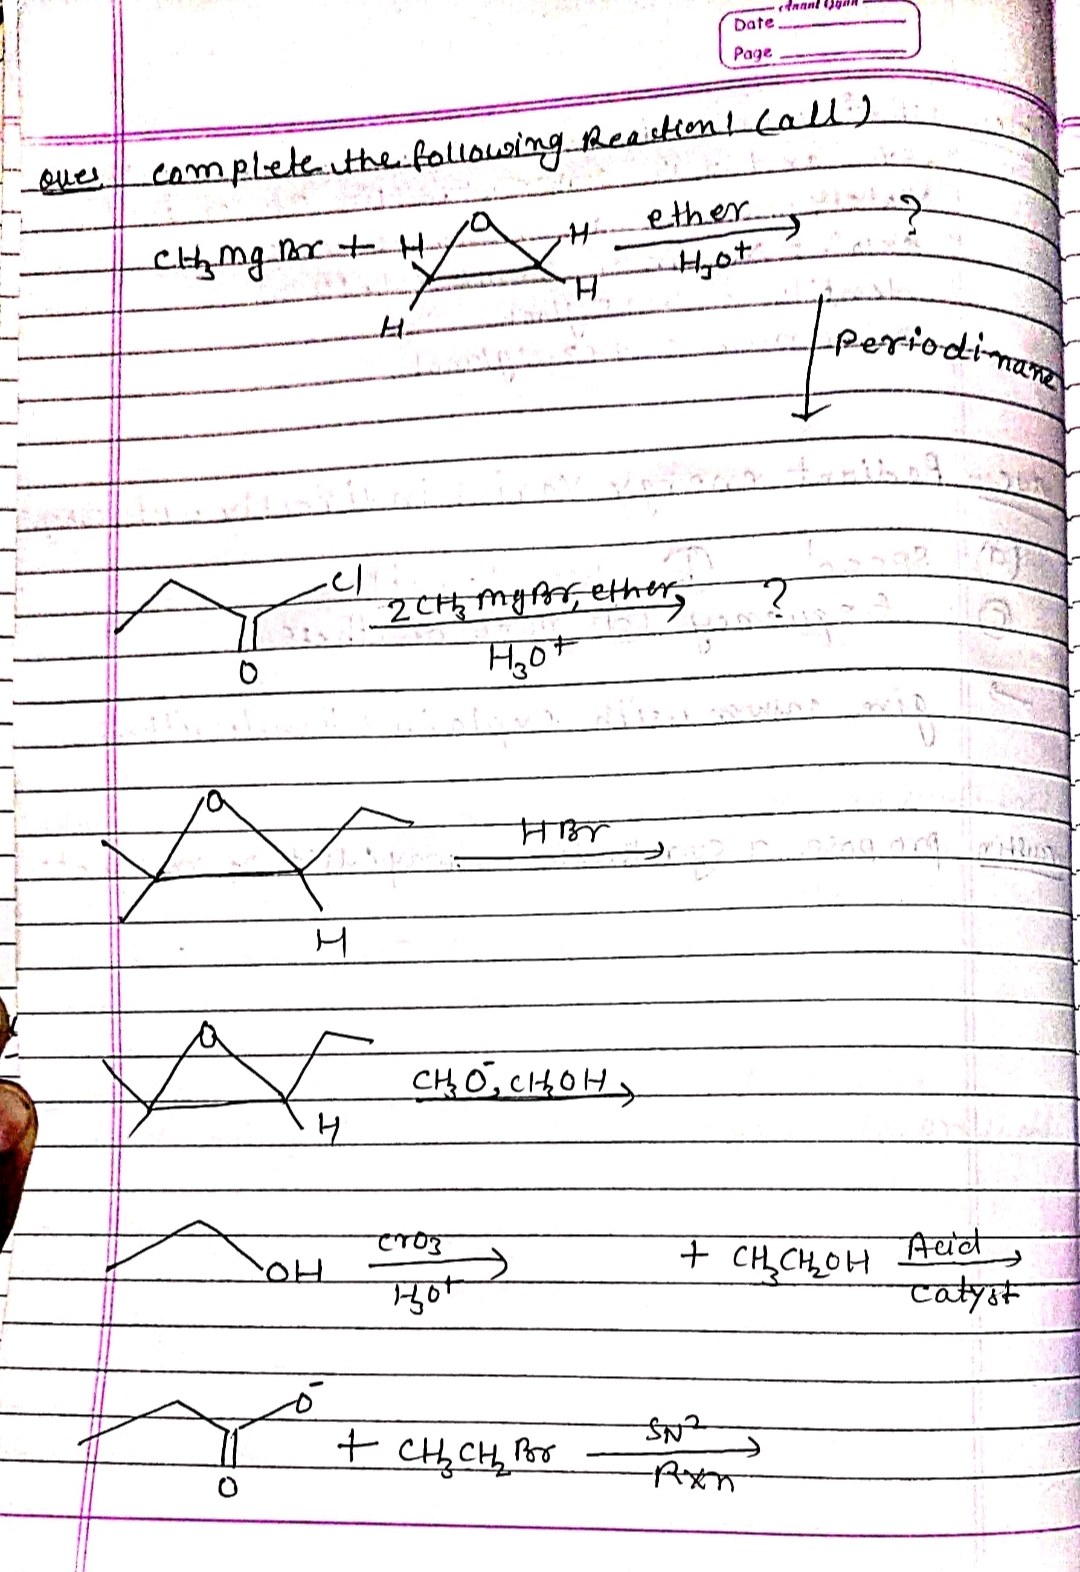 Date
Page
Ques complete the following Reaction! (all)
CH3 Mg Br + H O H H H ether H3O+ ?
Periodinane
Cl O 2 CH3 MgBr, ether, H3O+ ?
O H HBr
O H CH3O-, CH3OH
OH CrO3 H3O+ + CH3CH2OH Acid catyst
O- O + CH3CH2Br SN2 Rxn